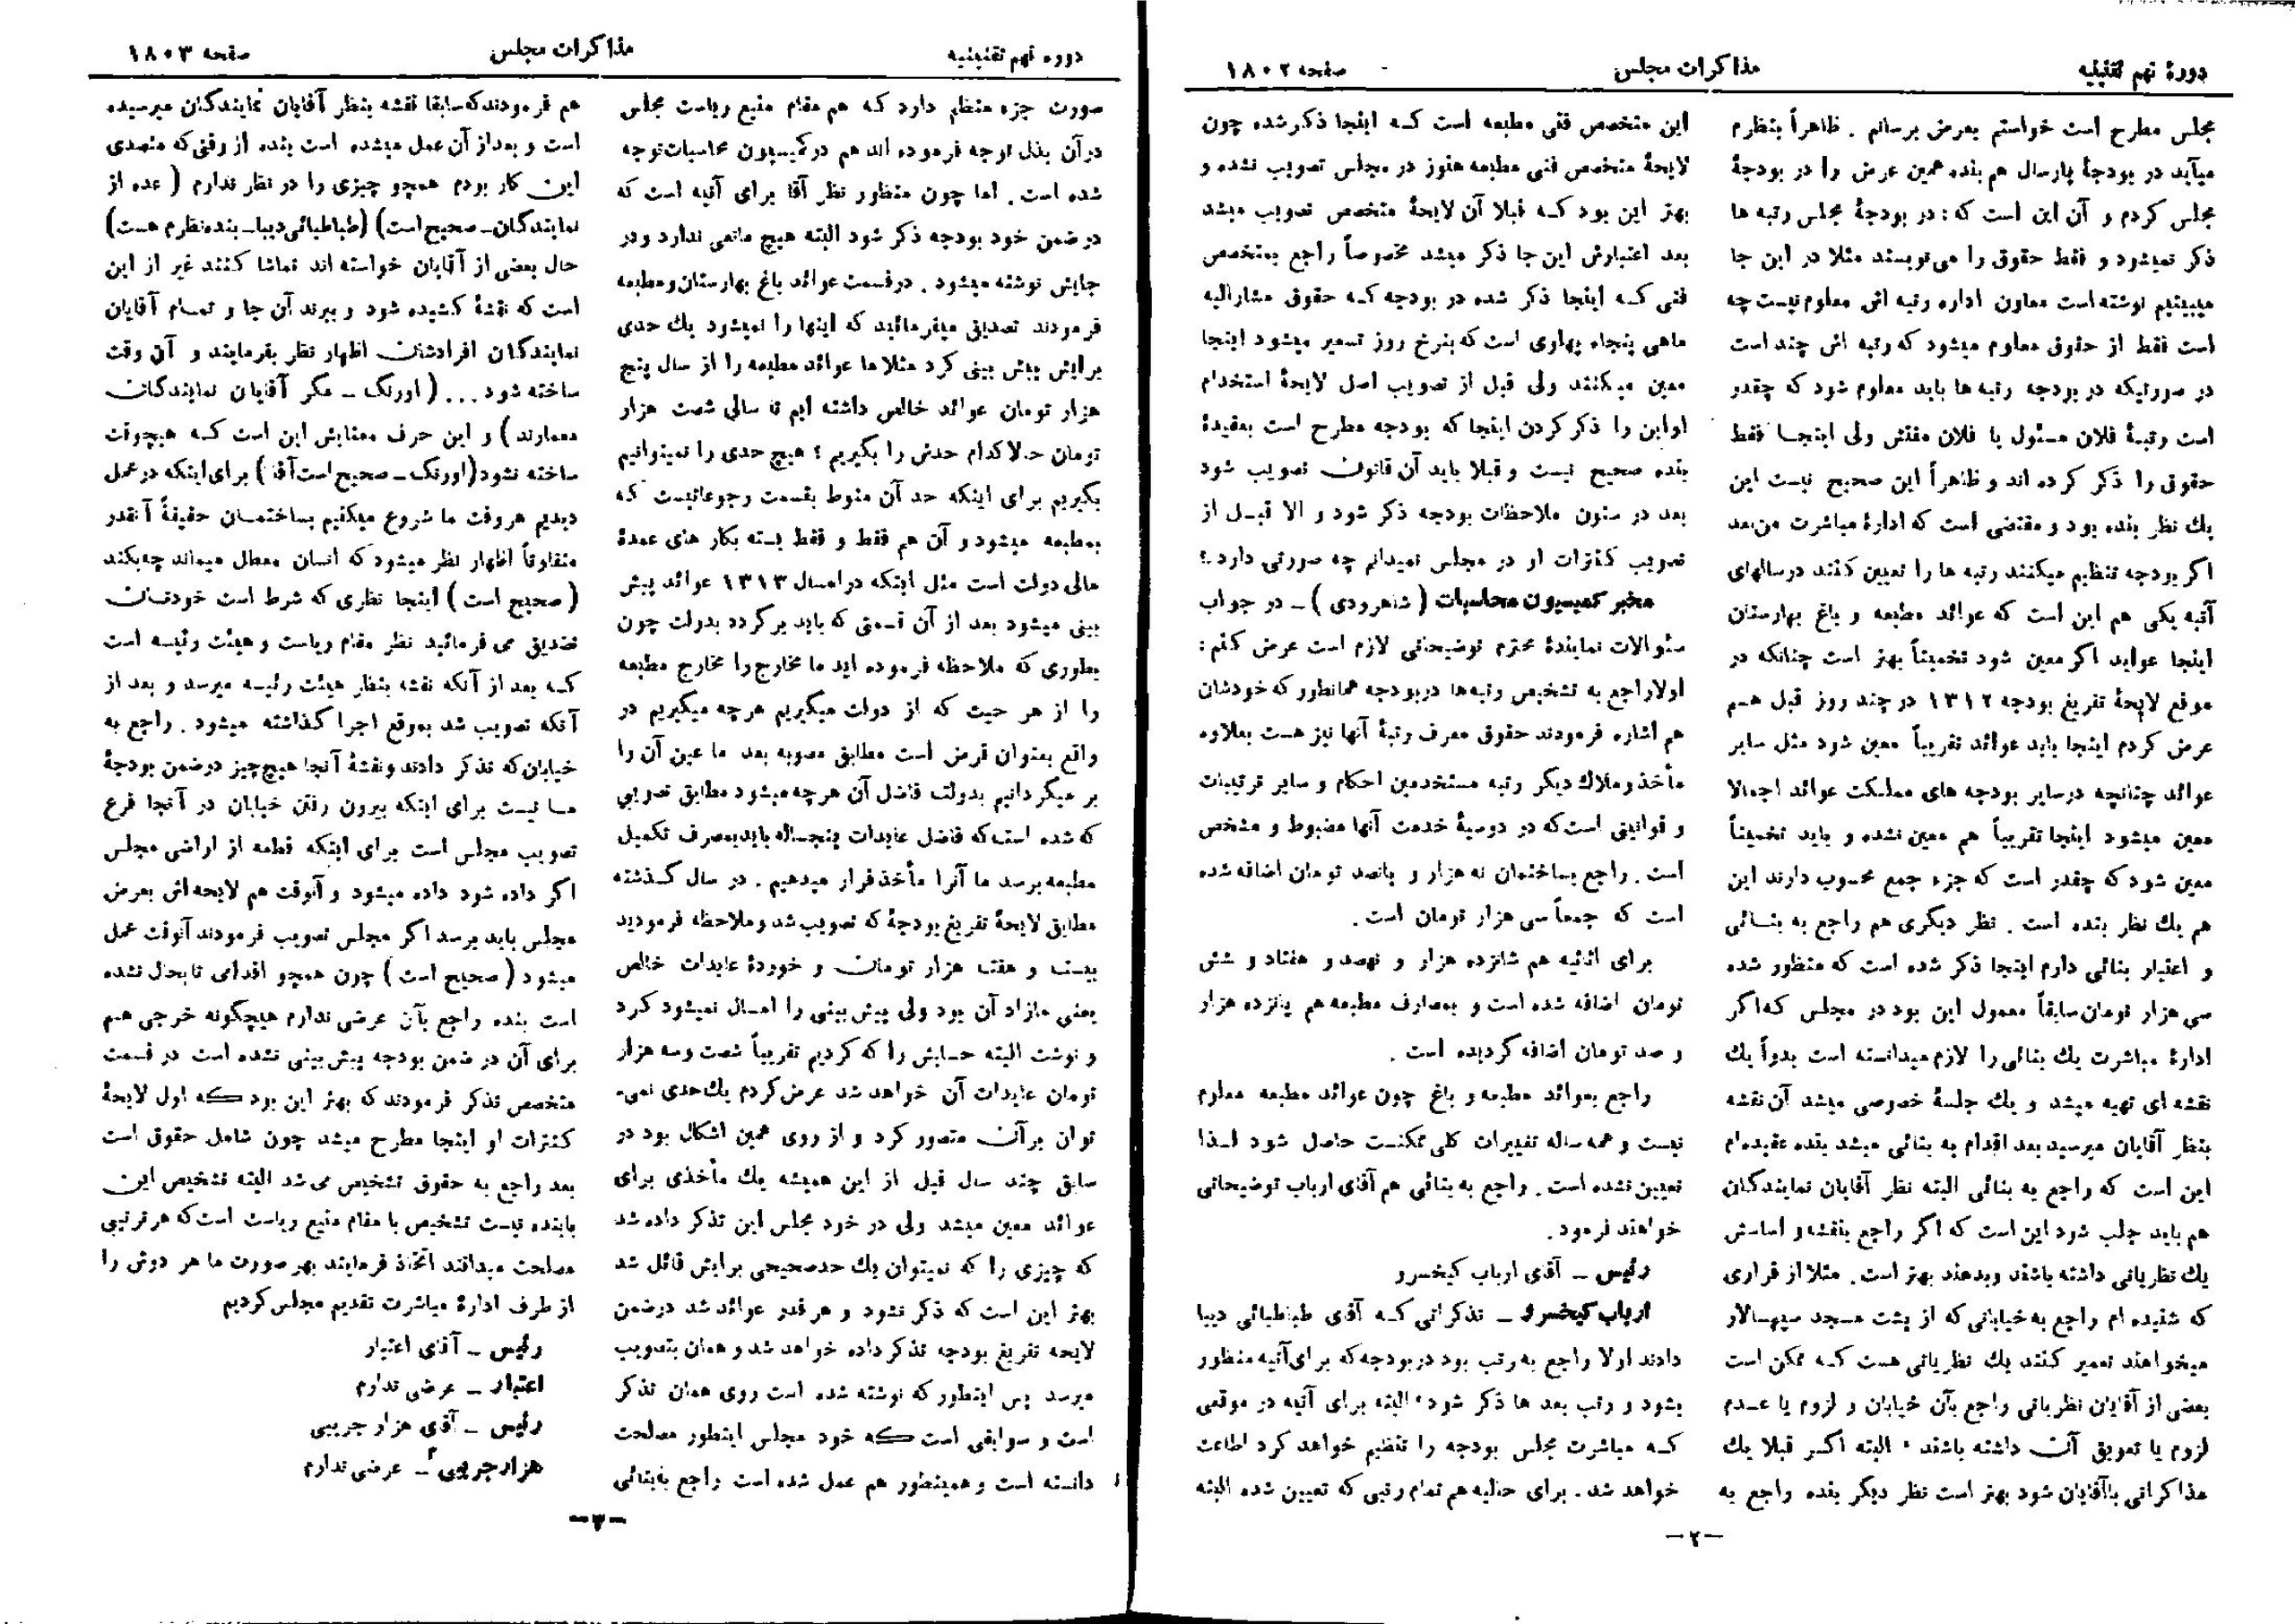 دورهٔ نهم تقنینیه
مذاکرات مجلس
صفحه ۱۸۰۲
مجلس مطرح است خواستم بعرض برسانم . ظاهراً بنظرم
میآید در بودجهٔ پارسال هم بنده همین عرض را در بودجهٔ
مجلس کردم و آن این است که : در بودجهٔ مجلس رتبه ها
ذکر نمیشود و فقط حقوق را می‌نویسند مثلا در این جا
میبینیم نوشته است معاون اداره رتبه اش معلوم نیست چه
است فقط از حقوق معلوم میشود که رتبه اش چند است
در صورتیکه در بودجه رتبه ها باید معلوم شود که چقدر
است رتبهٔ فلان مسئول یا فلان مفتش ولی اینجا فقط
حقوق را ذکر کرده اند و ظاهراً این صحیح نیست این
یك نظر بنده بود و مقتضی است که ادارهٔ مباشرت من‌بعد
اگر بودجه تنظیم میکنند رتبه ها را تعیین کنند درسالهای
آتیه یکی هم این است که عوائد مطبعه و باغ بهارستان
اینجا عواید اگر معین شود تخمیناً بهتر است چنانکه در
موقع لایحهٔ تفریغ بودجه ۱۳۱۲ در چند روز قبل هم
عرض کردم اینجا باید عوائد تقریباً معین شود مثل سایر
عوائد چنانچه درسایر بودجه های مملکت عوائد اجمالا
معین میشود اینجا تقریباً هم معین نشده و باید تخمیناً
معین شود که چقدر است که جزء جمع محسوب دارند این
هم یك نظر بنده است . نظر دیگری هم راجع به بنائی
و اعتبار بنائی دارم اینجا ذکر شده است که منظور شده
سی هزار تومان سابقاً معمول این بود در مجلس که‌اگر
ادارهٔ مباشرت یك بنائی را لازم میدانسته است بدواً یك
نقشه ای تهیه میشد و یك جلسهٔ خصوصی میشد آن نقشه
بنظر آقایان میرسید بعد اقدام به بنائی میشد بنده عقیده‌ام
این است که راجع به بنائی البته نظر آقایان نمایندگان
هم باید جلب شود این است که اگر راجع بنقشه و اساسش
یك نظریاتی داشته باشند و بدهند بهتر است . مثلا از قراری
که شنیده ام راجع به خیابانی که از پشت مسجد سپهسالار
میخواهند تعمیر کنند یك نظریاتی هست که ممکن است
بعضی از آقایان نظریاتی راجع بآن خیابان و لزوم یا عدم
لزوم یا تعویق آن داشته باشند ، البته اگر قبلا یك
مذاکراتی باآقایان شود بهتر است نظر دیگر بنده راجع به
این متخصص فنی مطبعه است که اینجا ذکر شده چون
لایحهٔ متخصص فنی مطبعه هنوز در مجلس تصویب نشده و
بهتر این بود که قبلا آن لایحهٔ متخصص تصویب میشد
بعد اعتبارش این جا ذکر میشد مخصوصاً راجع بمتخصص
فنی که اینجا ذکر شده در بودجه که حقوق مشارالیه
ماهی پنجاه پهلوی است که بنرخ روز تسعیر میشود اینجا
معین میکنند ولی قبل از تصویب اصل لایحهٔ استخدام
او این را ذکر کردن اینجا که بودجه مطرح است بعقیدهٔ
بنده صحیح نیست و قبلا باید آن قانون تصویب شود
بعد در ستون ملاحظات بودجه ذکر شود و الا قبل از
تصویب کنترات او در مجلس نمیدانم چه صورتی دارد .؟
مخبر کمیسیون محاسبات ( شاهرودی ) ــ در جواب
سئوالات نمایندهٔ محترم توضیحاتی لازم است عرض کنم :
اولا راجع به تشخیص رتبه‌ها دربودجه همانطور که خودشان
هم اشاره فرمودند حقوق معرف رتبهٔ آنها نیز هست بعلاوه
مأخذ و ملاك دیگر رتبه مستخدمین احکام و سایر ترتیبات
و قوانینی است که در دوسیهٔ خدمت آنها مضبوط و مشخص
است . راجع بساختمان نه هزار و پانصد تومان اضافه شده
است که جمعاً سی هزار تومان است .
برای اثاثیه هم شانزده هزار و نهصد و هفتاد و شش
تومان اضافه شده است و بمصارف مطبعه هم پانزده هزار
و صد تومان اضافه گردیده است .
راجع بعوائد مطبعه و باغ چون عوائد مطبعه معلوم
نیست و همه ساله تغییرات کلی ممکنست حاصل شود لذا
تعیین نشده است . راجع به بنائی هم آقای ارباب توضیحاتی
خواهند فرمود.
رئیس ــ آقای ارباب کیخسرو
ارباب کیخسرو ــ تذکراتی که آقای طباطبائی دیبا
دادند اولا راجع به رتب بود دربودجه‌که برای آتیه منظور
بشود و رتب بعد ها ذکر شود، البته برای آتیه در موقعی
که مباشرت مجلس بودجه را تنظیم خواهد کرد اطاعت
خواهد شد . برای حالیه هم تمام رتبی که تعیین شده البته
ــ ۲ ــ
دوره نهم تقنینیه
مذاکرات مجلس
صفحه ۱۸۰۳
صورت جزء منظم دارد که هم مقام منیع ریاست مجلس
درآن بذل توجه فرموده اند هم در کمیسیون محاسبات توجه
شده است . اما چون منظور نظر آقا برای آتیه است که
در ضمن خود بودجه ذکر شود البته هیچ مانعی ندارد و در
جایش نوشته میشود . درقسمت عوائد باغ بهارستان و مطبعه
فرمودند تصدیق میفرمائید که اینها را نمیشود یك حدی
برایش پیش بینی کرد مثلا ما عوائد مطبعه را از سال پنج
هزار تومان عوائد خالص داشته ایم تا سالی شصت هزار
تومان حالا کدام حدش را بگیریم ؟ هیچ حدی را نمیتوانیم
بگیریم برای اینکه حد آن منوط بقسمت رجوعاتیست که
بمطبعه میشود و آن هم فقط و فقط بسته بکار های عمدهٔ
مالی دولت است مثل اینکه در امسال ۱۳۱۳ عوائد پیش
بینی میشود بعد از آن قسمتی که باید برگردد بدولت چون
بطوری که ملاحظه فرموده اید ما مخارج را مخارج مطبعه
را از هر حیث که از دولت میگیریم هرچه میگیریم در
واقع بعنوان قرض است مطابق مصوبه بعد ما عین آن را
بر میگردانیم بدولت فاضل آن هرچه میشود مطابق تصویبی
که شده است که فاضل عایدات پنجساله باید بمصرف تکمیل
مطبعه برسد ما آنرا مأخذ قرار میدهیم . در سال گذشته
مطابق لایحهٔ تفریغ بودجهٔ که تصویب شد و ملاحظه فرمودید
بیست و هفت هزار تومان و خوردهٔ عایدات خالص
یعنی مازاد آن بود ولی پیش بینی را امسال نمیشود کرد
و نوشت البته حسابش را که کردیم تقریباً شصت و سه هزار
تومان عایدات آن خواهد شد عرض کردم یك حدی نمی‌-
توان برآن متصور کرد و از روی همین اشکال بود در
سابق چند سال قبل از این همیشه یك مأخذی برای
عوائد معین میشد ولی در خود مجلس این تذکر داده شد
که چیزی را که نمیتوان یك حدصحیحی برایش قائل شد
بهتر این است که ذکر نشود و هر قدر عوائد شد درضمن
لایحه تفریغ بودجه تذکر داده خواهد شد و همان بتصویب
میرسد پس اینطور که نوشته شده است روی همان تذکر
است و سوابقی است که خود مجلس اینطور مصلحت
دانسته است و همینطور هم عمل شده است راجع به‌بنائی
هم فرمودند که سابقا نقشه بنظر آقایان نمایندگان میرسیده
است و بعد از آن عمل میشده است بنده از وقتی که متصدی
این کار بودم همچو چیزی را در نظر ندارم ( عده از
نمایندگان ــ صحیح است) (طباطبائی دیبا ــ بنده نظرم هست)
حال بعضی از آقایان خواسته اند تماشا کنند غیر از این
است که نقشهٔ کشیده شود و ببرند آن جا و تمام آقایان
نمایندگان افرادشان اظهار نظر بفرمایند و آن وقت
ساخته شود ... ( اورنگ ــ مگر آقایان نمایندگان
معمارند ) و این حرف معنایش این است که هیچوقت
ساخته نشود (اورنگ ــ صحیح است آقا) برای اینکه در عمل
دیدیم هر وقت ما شروع میکنیم بساختمان حقیقةً آنقدر
متفاوتاً اظهار نظر میشود که انسان معطل میماند چه بکند
( صحیح است ) اینجا نظری که شرط است خودتان
تصدیق می فرمائید نظر مقام ریاست و هیئت رئیسه است
که بعد از آنکه نقشه بنظر هیئت رئیسه میرسد و بعد از
آنکه تصویب شد بموقع اجرا گذاشته میشود . راجع به
خیابان که تذکر دادند و نقشهٔ آنجا هیچ چیز درضمن بودجهٔ
ما نیست برای اینکه بیرون رفتن خیابان در آنجا فرع
تصویب مجلس است برای اینکه قطعه از اراضی مجلس
اگر داده شود داده میشود و آنوقت هم لایحه اش بعرض
مجلس باید برسد اگر مجلس تصویب فرمودند آنوقت عمل
میشود ( صحیح است ) چون همچو اقدامی تابحال نشده
است بنده راجع بآن عرضی ندارم هیچگونه خرجی هم
برای آن در ضمن بودجه پیش بینی نشده است در قسمت
متخصص تذکر فرمودند که بهتر این بود که اول لایحهٔ
کنترات او اینجا مطرح میشد چون شامل حقوق است
بعد راجع به حقوق تشخیص می شد البته تشخیص این
بابنده نیست تشخیص با مقام منیع ریاست است که هر ترتیبی
مصلحت میدانند اتخاذ فرمایند بهر صورت ما هر دوش را
از طرف ادارهٔ مباشرت تقدیم مجلس کردیم
رئیس ــ آقای اعتبار
اعتبار ــ عرضی ندارم
رئیس ــ آقای هزار جریبی
هزارجریبی ــ عرضی ندارم
ــ ۳ ــ